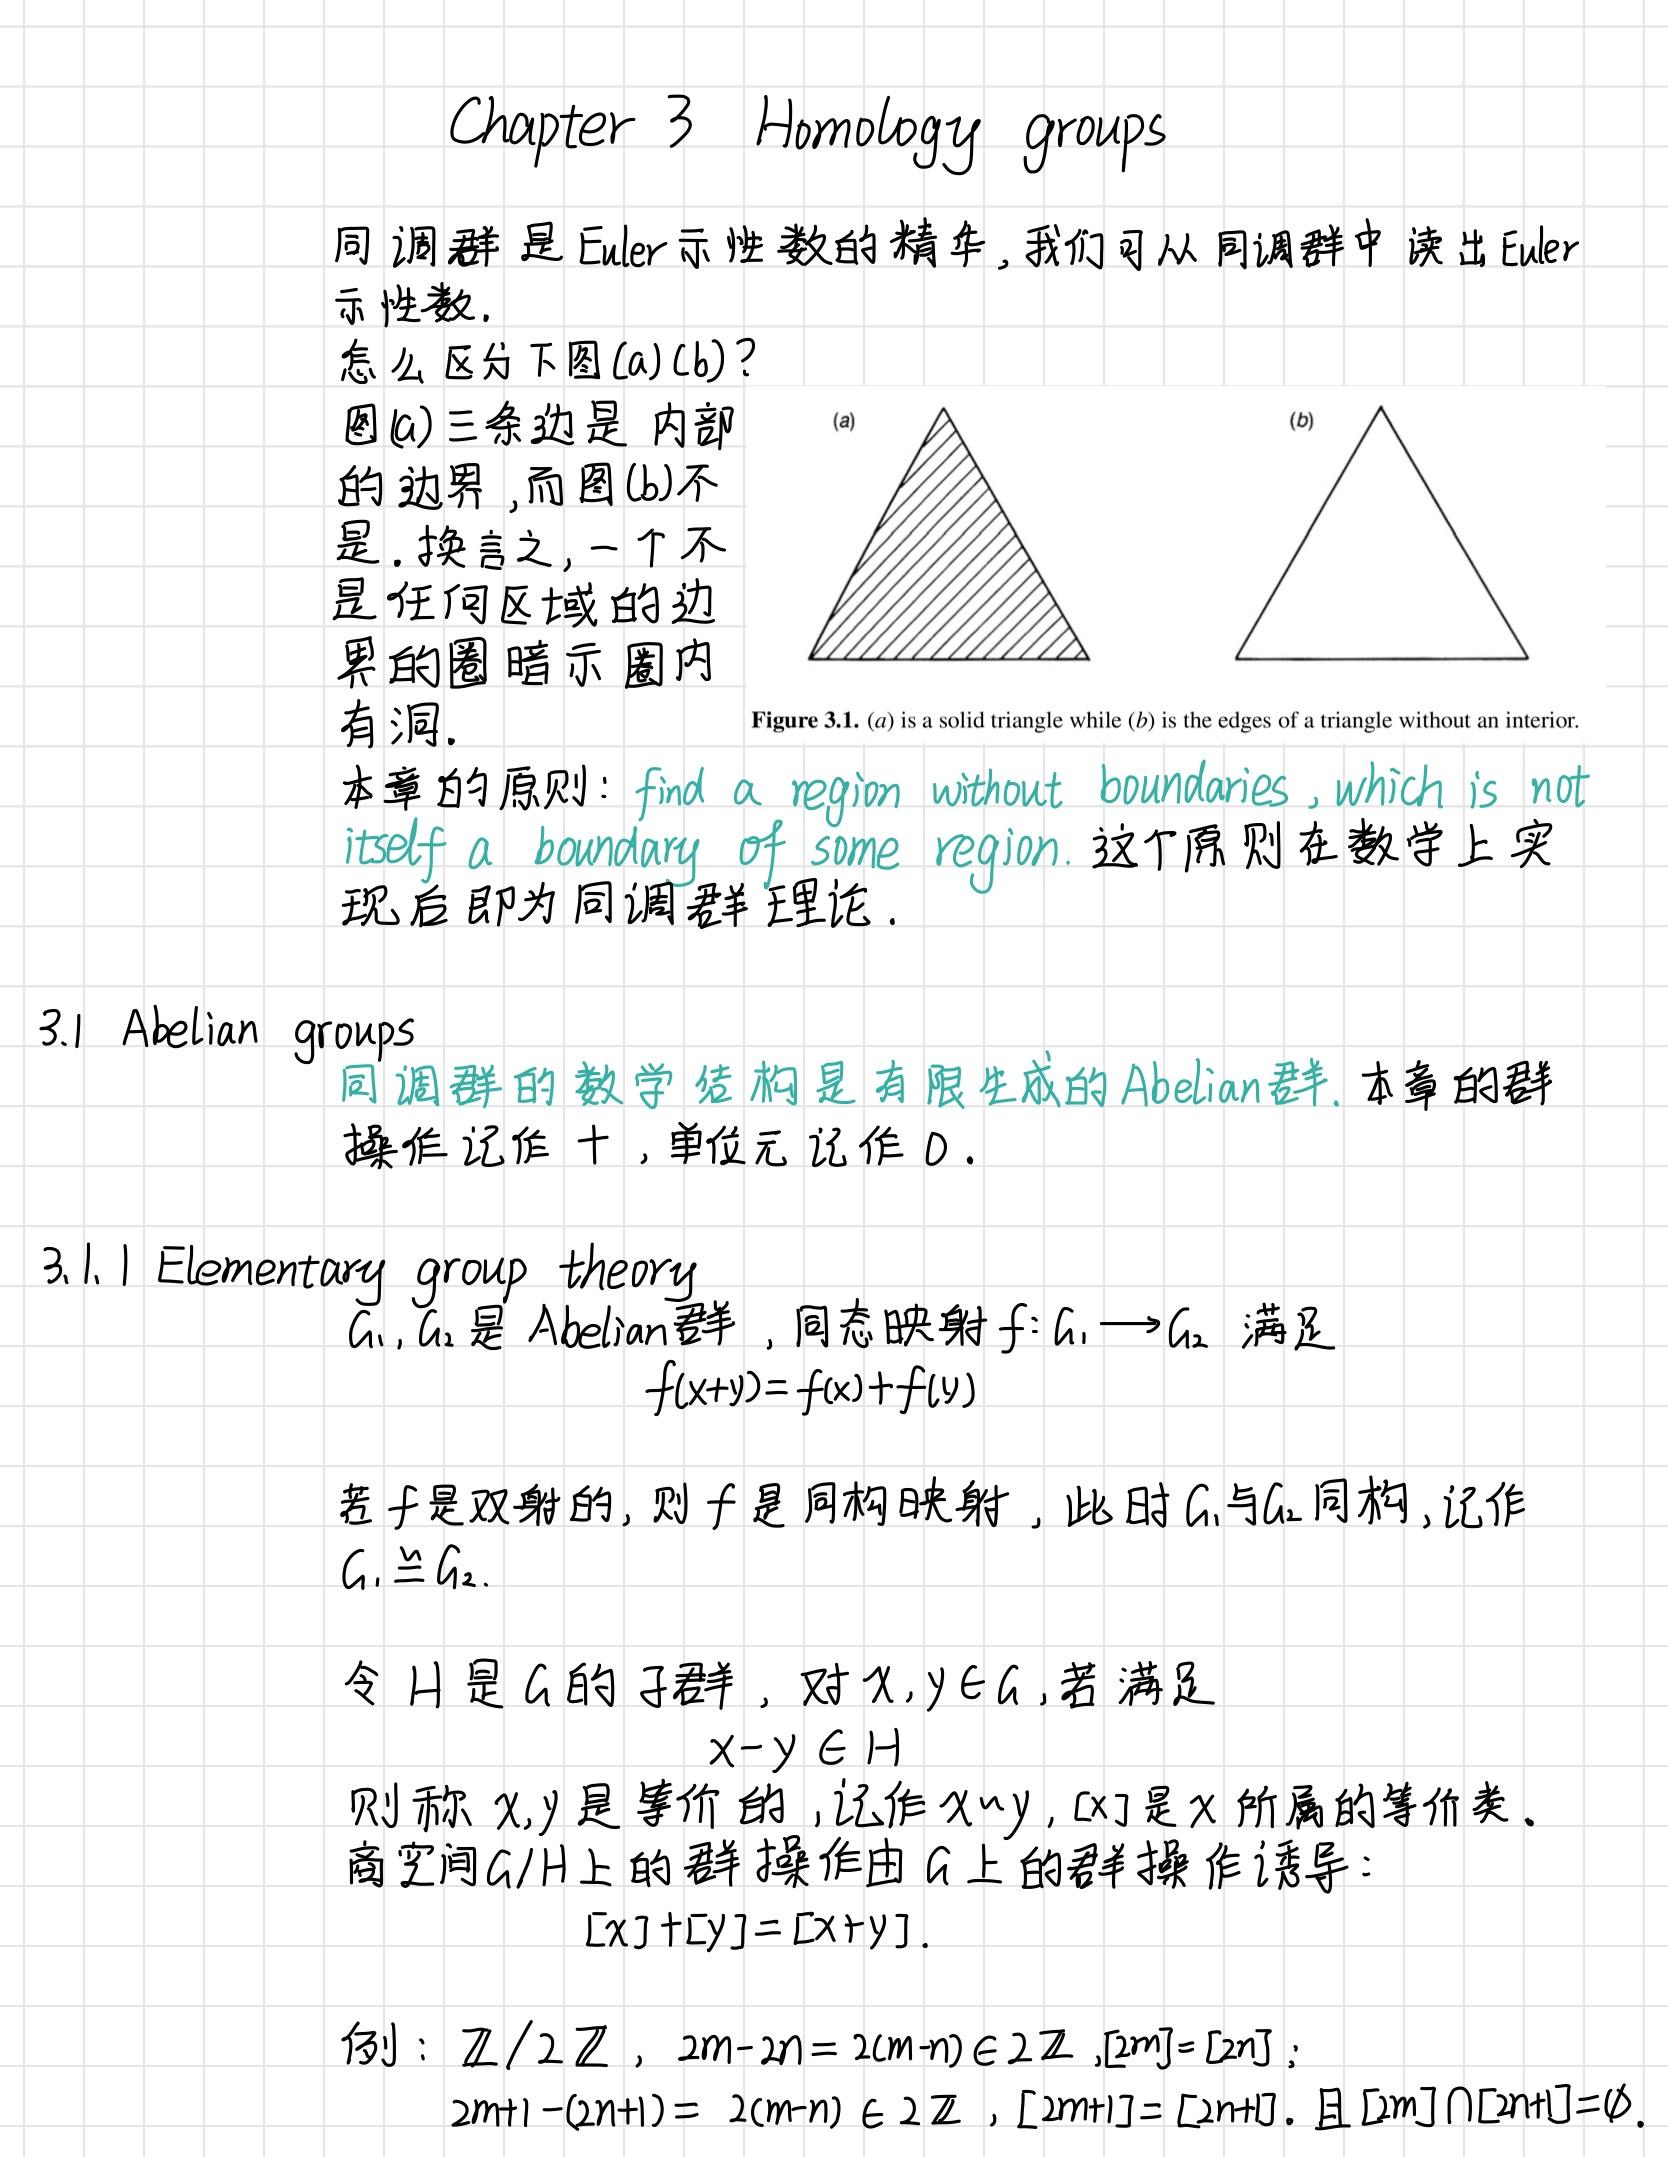 Chapter 3 Homology groups
同调群是Euler示性数的精华,我们可从同调群中读出Euler
示性数.
怎么区分下图(a)(b)?
图(a)三条边是内部
的边界,而图(b)不
是.换言之,一个不
是任何区域的边
界的圈暗示圈内
有洞.
(a)
(b)
Figure 3.1. (a) is a solid triangle while (b) is the edges of a triangle without an interior.
本章的原则: find a region without boundaries, which is not
itself a boundary of some region. 这个原则在数学上实
现后即为同调群理论.
3.1 Abelian groups
同调群的数学结构是有限生成的Abelian群. 本章的群
操作记作 + ,单位元记作 0.
3.1.1 Elementary group theory
G₁, G₂是 Abelian群,同态映射 f: G₁ ⟶ G₂ 满足
f(x+y)=f(x)+f(y)
若 f 是双射的,则 f 是同构映射,此时 G₁与G₂同构,记作
G₁≌G₂.
令 H 是 G 的子群,对 x, y∈G,若满足
x-y ∈ H
则称 x,y 是等价的,记作 x~y, [x]是 x 所属的等价类.
商空间G/H上的群操作由 G 上的群操作诱导:
[x]+[y]=[x+y].
例: ℤ/2ℤ, 2m-2n=2(m-n)∈2ℤ,[2m]=[2n];
2m+1-(2n+1)= 2(m-n) ∈ 2ℤ, [2m+1]=[2n+1]. 且[2m]∩[2n+1]=∅.